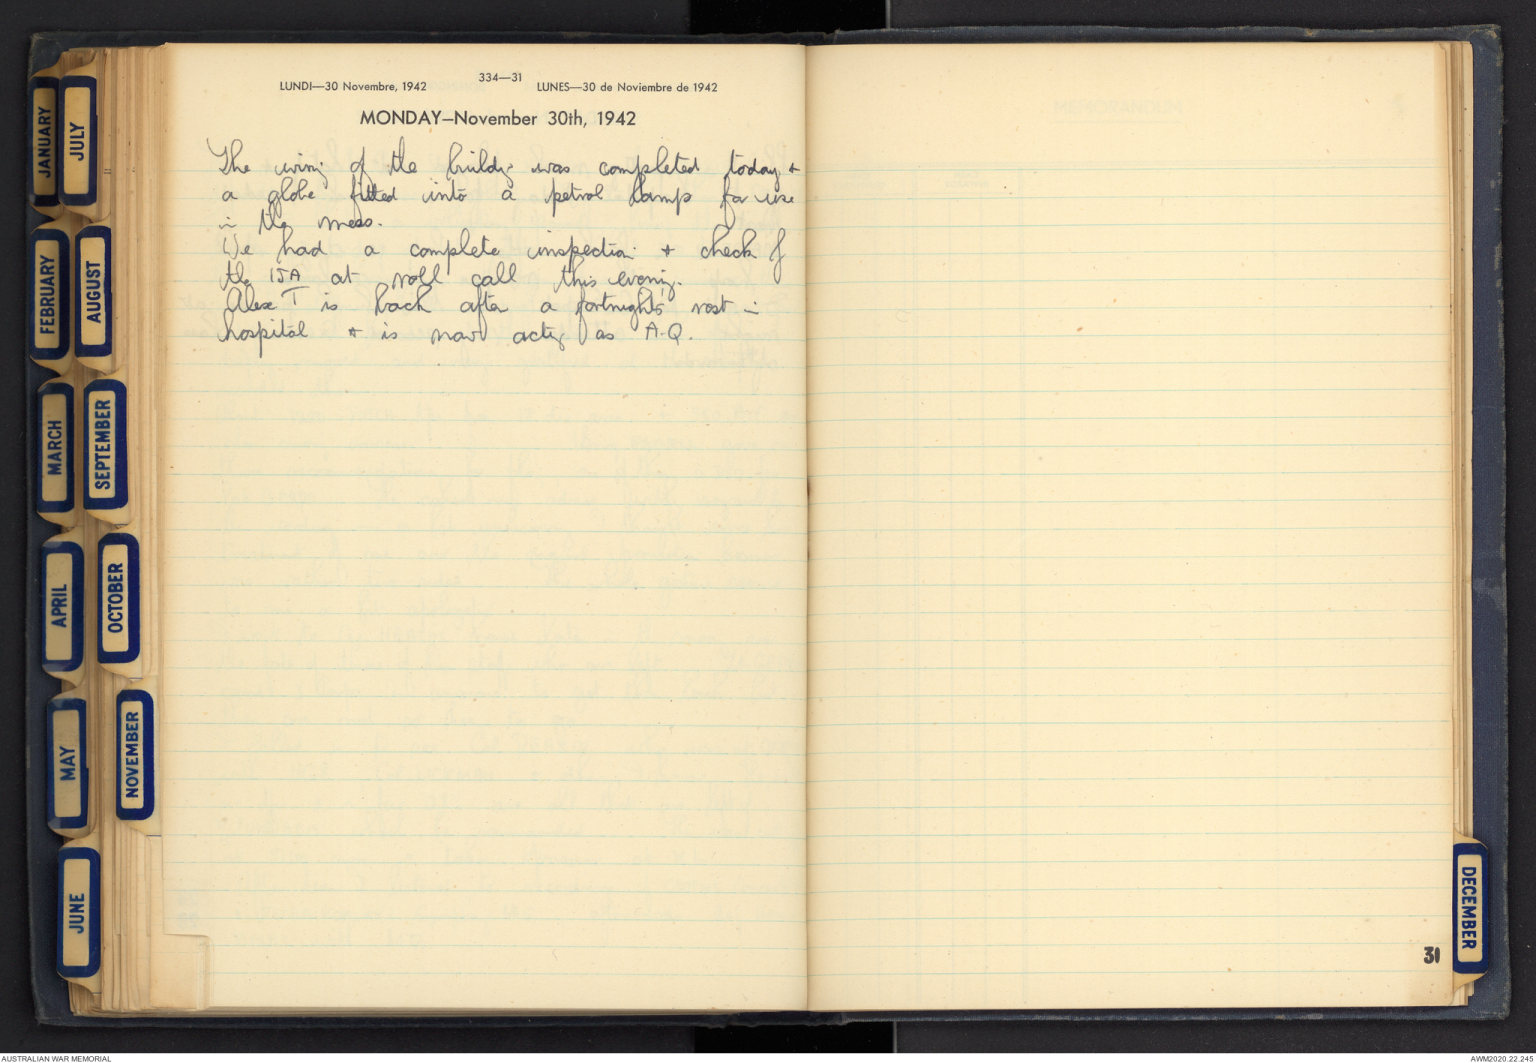 334—31
LUNDI—30 Novembre, 1942 LUNES—30 de Noviembre de 1942
MONDAY—November 30th, 1942
The wiring of the buildg was completed today +
a globe fitted into a petrol lamp for use
in the mess.
We had a complete inspection + check of
the IJA at roll call this evening.
Alex T is back after a fortnights rest in
hospital + is now actg as A.Q.
JANUARY
FEBRUARY
MARCH
APRIL
MAY
JUNE
JULY
AUGUST
SEPTEMBER
OCTOBER
NOVEMBER
DECEMBER
31
AUSTRALIAN WAR MEMORIAL
AWM2020.22.245